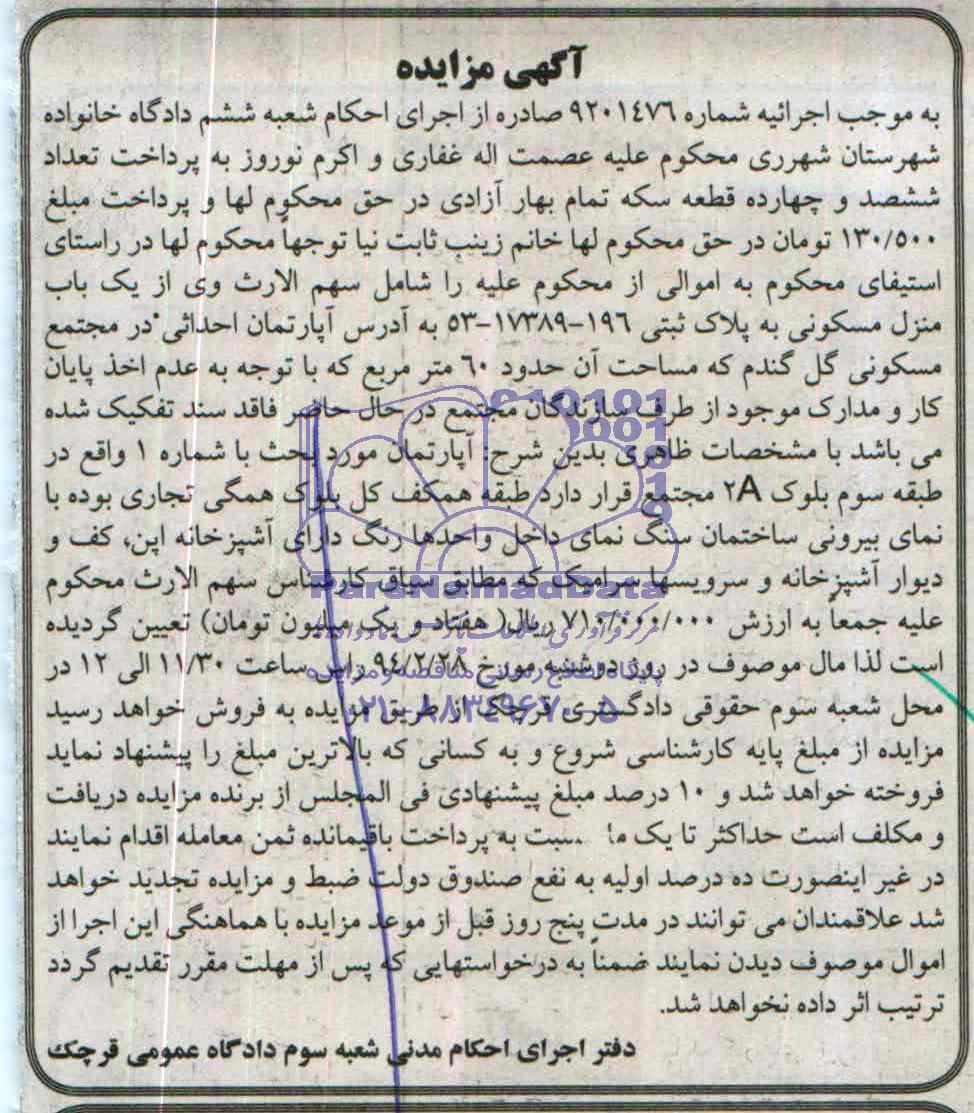 آگهی مزایده
به موجب اجرائیه شماره ۹۲۰۱٤۷٦ صادره از اجرای احکام شعبه ششم دادگاه خانواده
شهرستان شهرری محکوم علیه عصمت اله غفاری و اکرم نوروز به پرداخت تعداد
ششصد و چهارده قطعه سکه تمام بهار آزادی در حق محکوم لها و پرداخت مبلغ
۱۳۰/۵۰۰ تومان در حق محکوم لها خانم زینب ثابت نیا توجهاً محکوم لها در راستای
استیفای محکوم به اموالی از محکوم علیه را شامل سهم الارث وی از یک باب
منزل مسکونی به پلاک ثبتی ۱۹٦-۱۷۳۸۹-۵۳ به آدرس آپارتمان احداثی در مجتمع
مسکونی گل گندم که مساحت آن حدود ٦۰ متر مربع که با توجه به عدم اخذ پایان
کار و مدارک موجود از طرف سازندگان مجتمع در حال حاضر فاقد سند تفکیک شده
می باشد با مشخصات ظاهری بدین شرح: آپارتمان مورد بحث با شماره ۱ واقع در
طبقه سوم بلوک ۲A مجتمع قرار دارد طبقه همکف کل بلوک همگی تجاری بوده با
نمای بیرونی ساختمان سنگ نمای داخل واحدها رنگ دارای آشپزخانه اپن، کف و
دیوار آشپزخانه و سرویسها سرامیک که مطابق سیاق کارشناس سهم الارث محکوم
علیه جمعاً به ارزش ۷۱۰/۰۰۰/۰۰۰ ریال( هفتاد و یک میلیون تومان) تعیین گردیده
است لذا مال موصوف در روز دوشنبه مورخ ۹٤/۲/۲۸ راس ساعت ۱۱/۳۰ الی ۱۲ در
محل شعبه سوم حقوقی دادگستری قرچک از طریق مزایده به فروش خواهد رسید
مزایده از مبلغ پایه کارشناسی شروع و به کسانی که بالاترین مبلغ را پیشنهاد نماید
فروخته خواهد شد و ۱۰ درصد مبلغ پیشنهادی فی المجلس از برنده مزایده دریافت
و مکلف است حداکثر تا یک به پرداخت باقیمانده ثمن معامله اقدام نمایند
در غیر اینصورت ده درصد اولیه به نفع صندوق دولت ضبط و مزایده تجدید خواهد
شد علاقمندان می توانند در مدت پنج روز قبل از موعد مزایده با هماهنگی این اجرا از
اموال موصوف دیدن نمایند ضمناً به درخواستهایی که پس از مهلت مقرر تقدیم گردد
ترتیب اثر داده نخواهد شد.
دفتر اجرای احکام مدنی شعبه سوم دادگاه عمومی قرچک
ParsNamadData
پایگاه اطلاع رسانی مناقصه و مزایده
۰۲۱-۸۸۳٤۹٦۷۰-۵